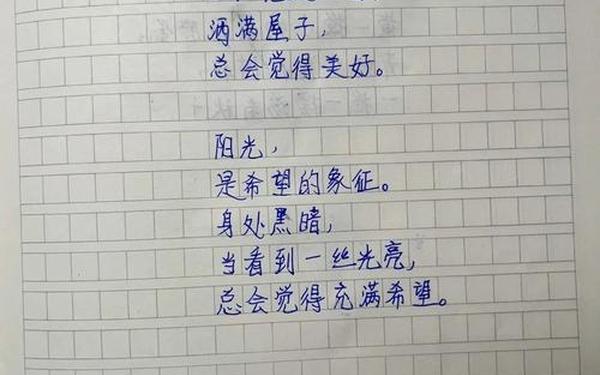 洒满屋子，
总会觉得美好。
阳光，
是希望的象征。
身处黑暗，
当看到一丝光亮，
总会觉得充满希望。